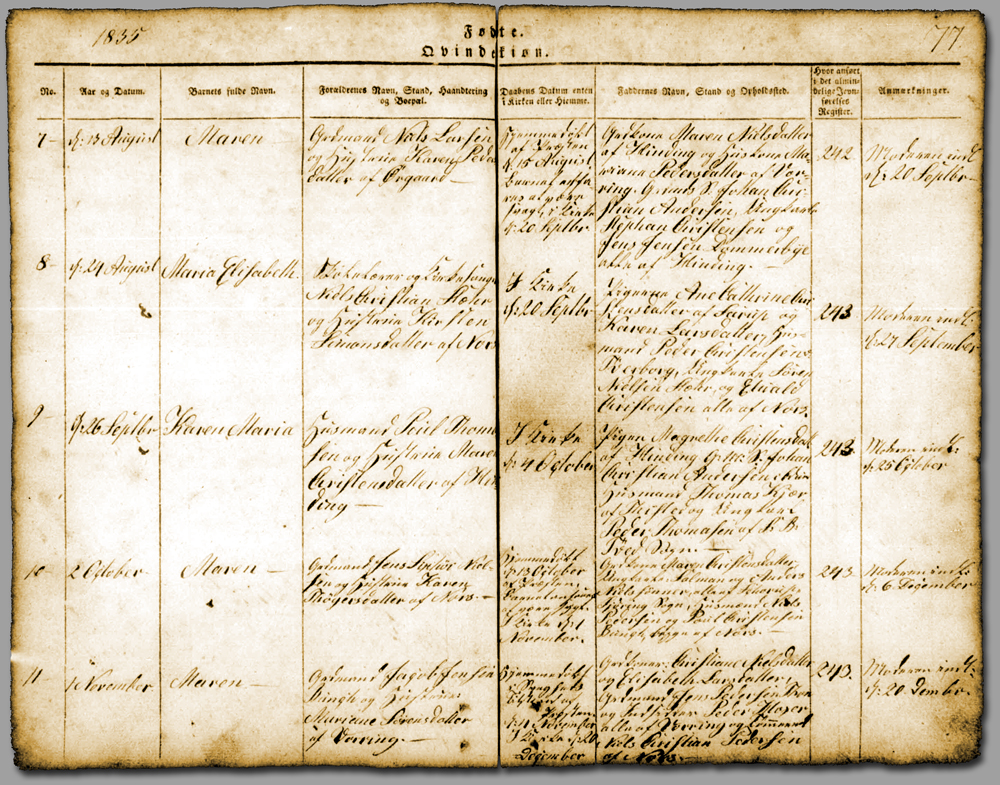 1835
Fødte.
77.
Qvindekiøn.
No.
Aar og Datum.
Barnets fulde Navn.
Forældrenes Navn, Stand, Haandtering
og Boepæl.
Daabens Datum enten
i Kirken eller Hiemme.
Faddernes Navn, Stand og Opholdssted.
Hvor anført
i det almin-
delige Jevn-
førelses
Register.
Anmærkninger.
7
d: 13 August
Maren
Grdmand Niels Larsen
og Hustrue Karen Peders-
datter af Ørgaard
Hjemmedøbt
af Præsten
d: 15 August
i Kirke
d: 20 Septbr
Grdkone Maren Nielsdatter
af Hinding og Huuskone Ma-
riane Pedersdatter af Vor-
ring, Grdm: S. Johan Chri-
stian Andersen, Ungkarle
Stephan Christensen og
Jens Jensen Dommerbye
alle af Hinding.
242
Moderen indl:
d: 20 Septbr
8
d: 24 August
Maria Elisabeth
Skolelærer og Kirkesanger
Niels Christian Støhr
og Hustrue Kirsten
Simonsdatter af Nors
I Kirke
d: 20 Septbr
Pigerne Ane Cathrine Chri-
stensdatter af Saarup og
Karen Larsdatter, Huus-
mand Peder Christensen
Ungkarle Søren
Nielsen Støhr, og Edvald
Christensen alle af Nors.
243
Moderen indl:
d: 27 September
9
d: 26 Septbr
Karen Maria
Huusmand Poul Thom-
sen og Hustrue Maren
Christensdatter af Hin-
ding
I Kirke
d: 4 October
Pigen Magrethe Christensdat:
af Hinding Grdm: S. Johan
Christian Andersen
Huusmand Thomas Kjær
af Thisted og Ungkarl
Peder Thomasen af
Sogn.
243
Moderen indl:
d: 25 October
10
2 October
Maren
Grdmand Jens Niel-
sen og Hustrue Karen
Thøgersdatter af Nors.
Hjemmedøbt
d: 13 October
af Præsten
i Kirke d: 1
November.
Grdkone Maren Christensdatter,
Ungkarle Salman og Anders
Sogn, Huusmand Niels
Pedersen og Poul Christensen
Bundgh, begge af Nors.
243
Moderen indl:
d: 6 December
11
1 November
Maren
Grdmand Jacob Jensen
Bingh og Hustrue
Mariane Sørensdatter
af Vorring.
Hjemmedøbt
af Præsten
d: 11 November
I Kirke d: 20
December
Grdkoner: Christiane Nielsdatter
og Elisabeth Larsdatter,
Grdmænd Jens Pedersen
og Indsidder Peder Moser
alle af Vorring og Tømmermd
Niels Christian Pedersen
af Nors.
243
Moderen indl:
d: 20 Decmber